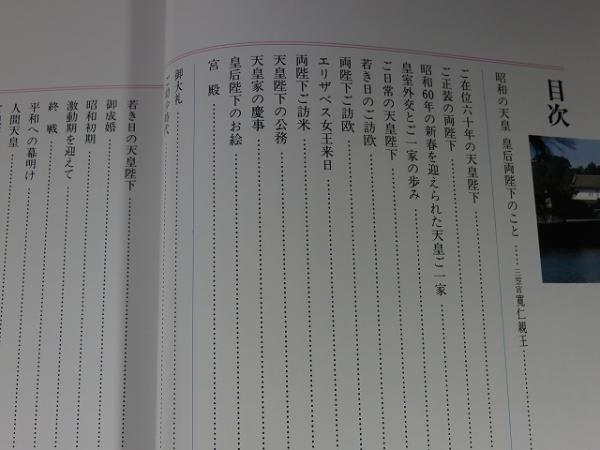 目次
昭和の天皇 皇后両陛下のこと……三笠宮寬仁親王
ご在位六十年の天皇陛下
ご正装の両陛下
昭和60年の新春を迎えられた天皇ご一家
皇室外交とご一家の歩み
ご日常の天皇陛下
若き日のご訪欧
両陛下ご訪欧
エリザベス女王来日
両陛下ご訪米
天皇陛下の公務
天皇家の慶事
皇后陛下のお絵
宮殿
御大礼
若き日の天皇陛下
御成婚
昭和初期
激動期を迎えて
終戦
平和への幕明け
人間天皇